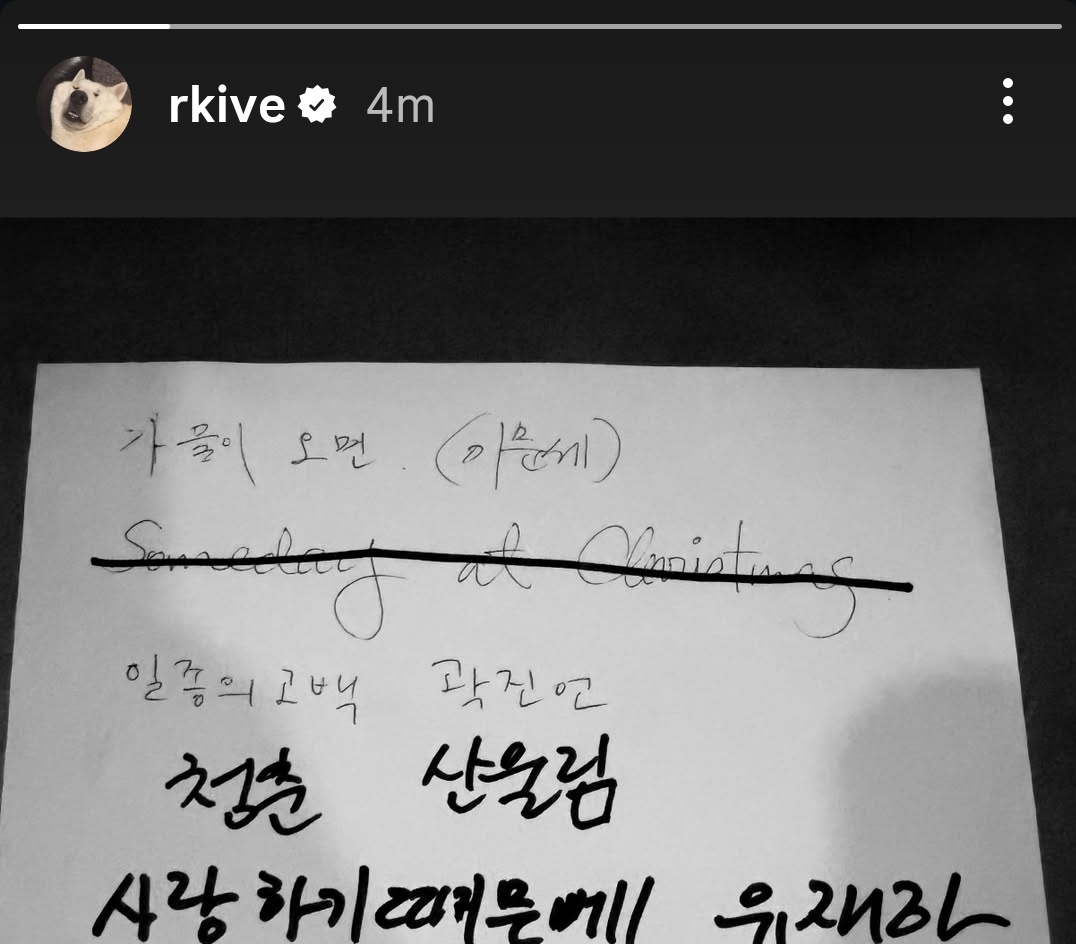 rkive 4m
가을이 오면. (이문세)
Someday at Christmas
일종의 고백 곽진언
청춘 산울림
사랑하기 때문에 유재하